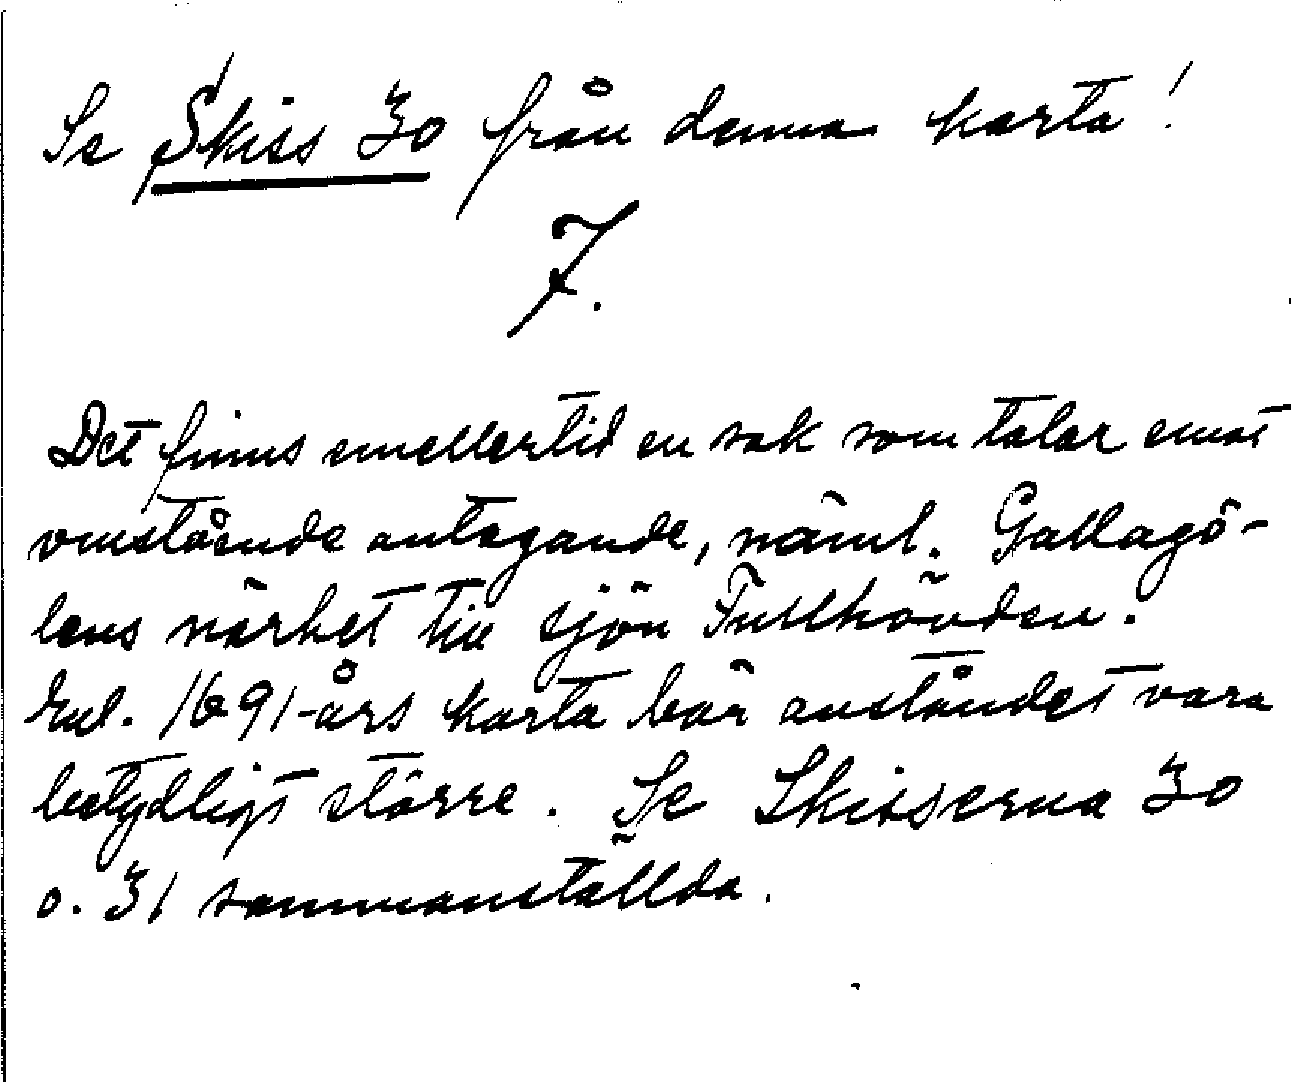 Se Skiss 30 från denna karta!
7.
Det finns emellertid en sak som talar emot
omstående antagande, näml. Gallagö-
lens närhet till sjön Fullhövden.
Enl. 1691-års karta bör avståndet vara
betydligt större. Se Skisserna 30
o. 31 sammanställda.